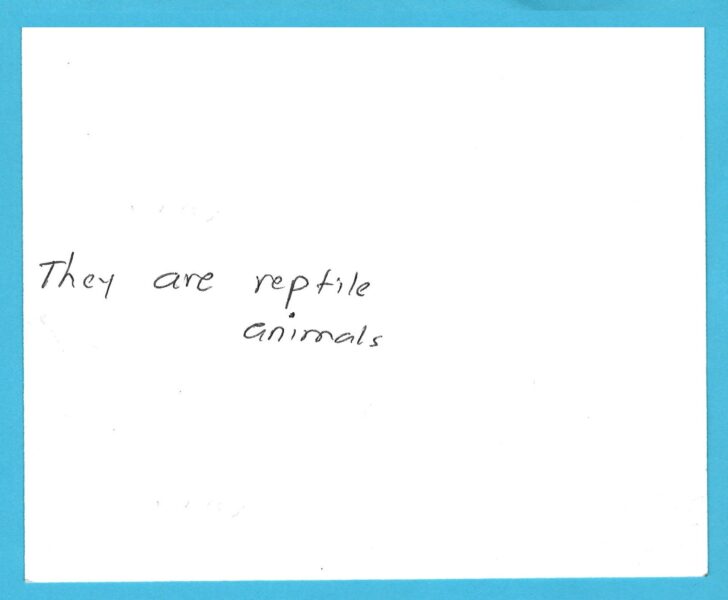 They are reptile
animals